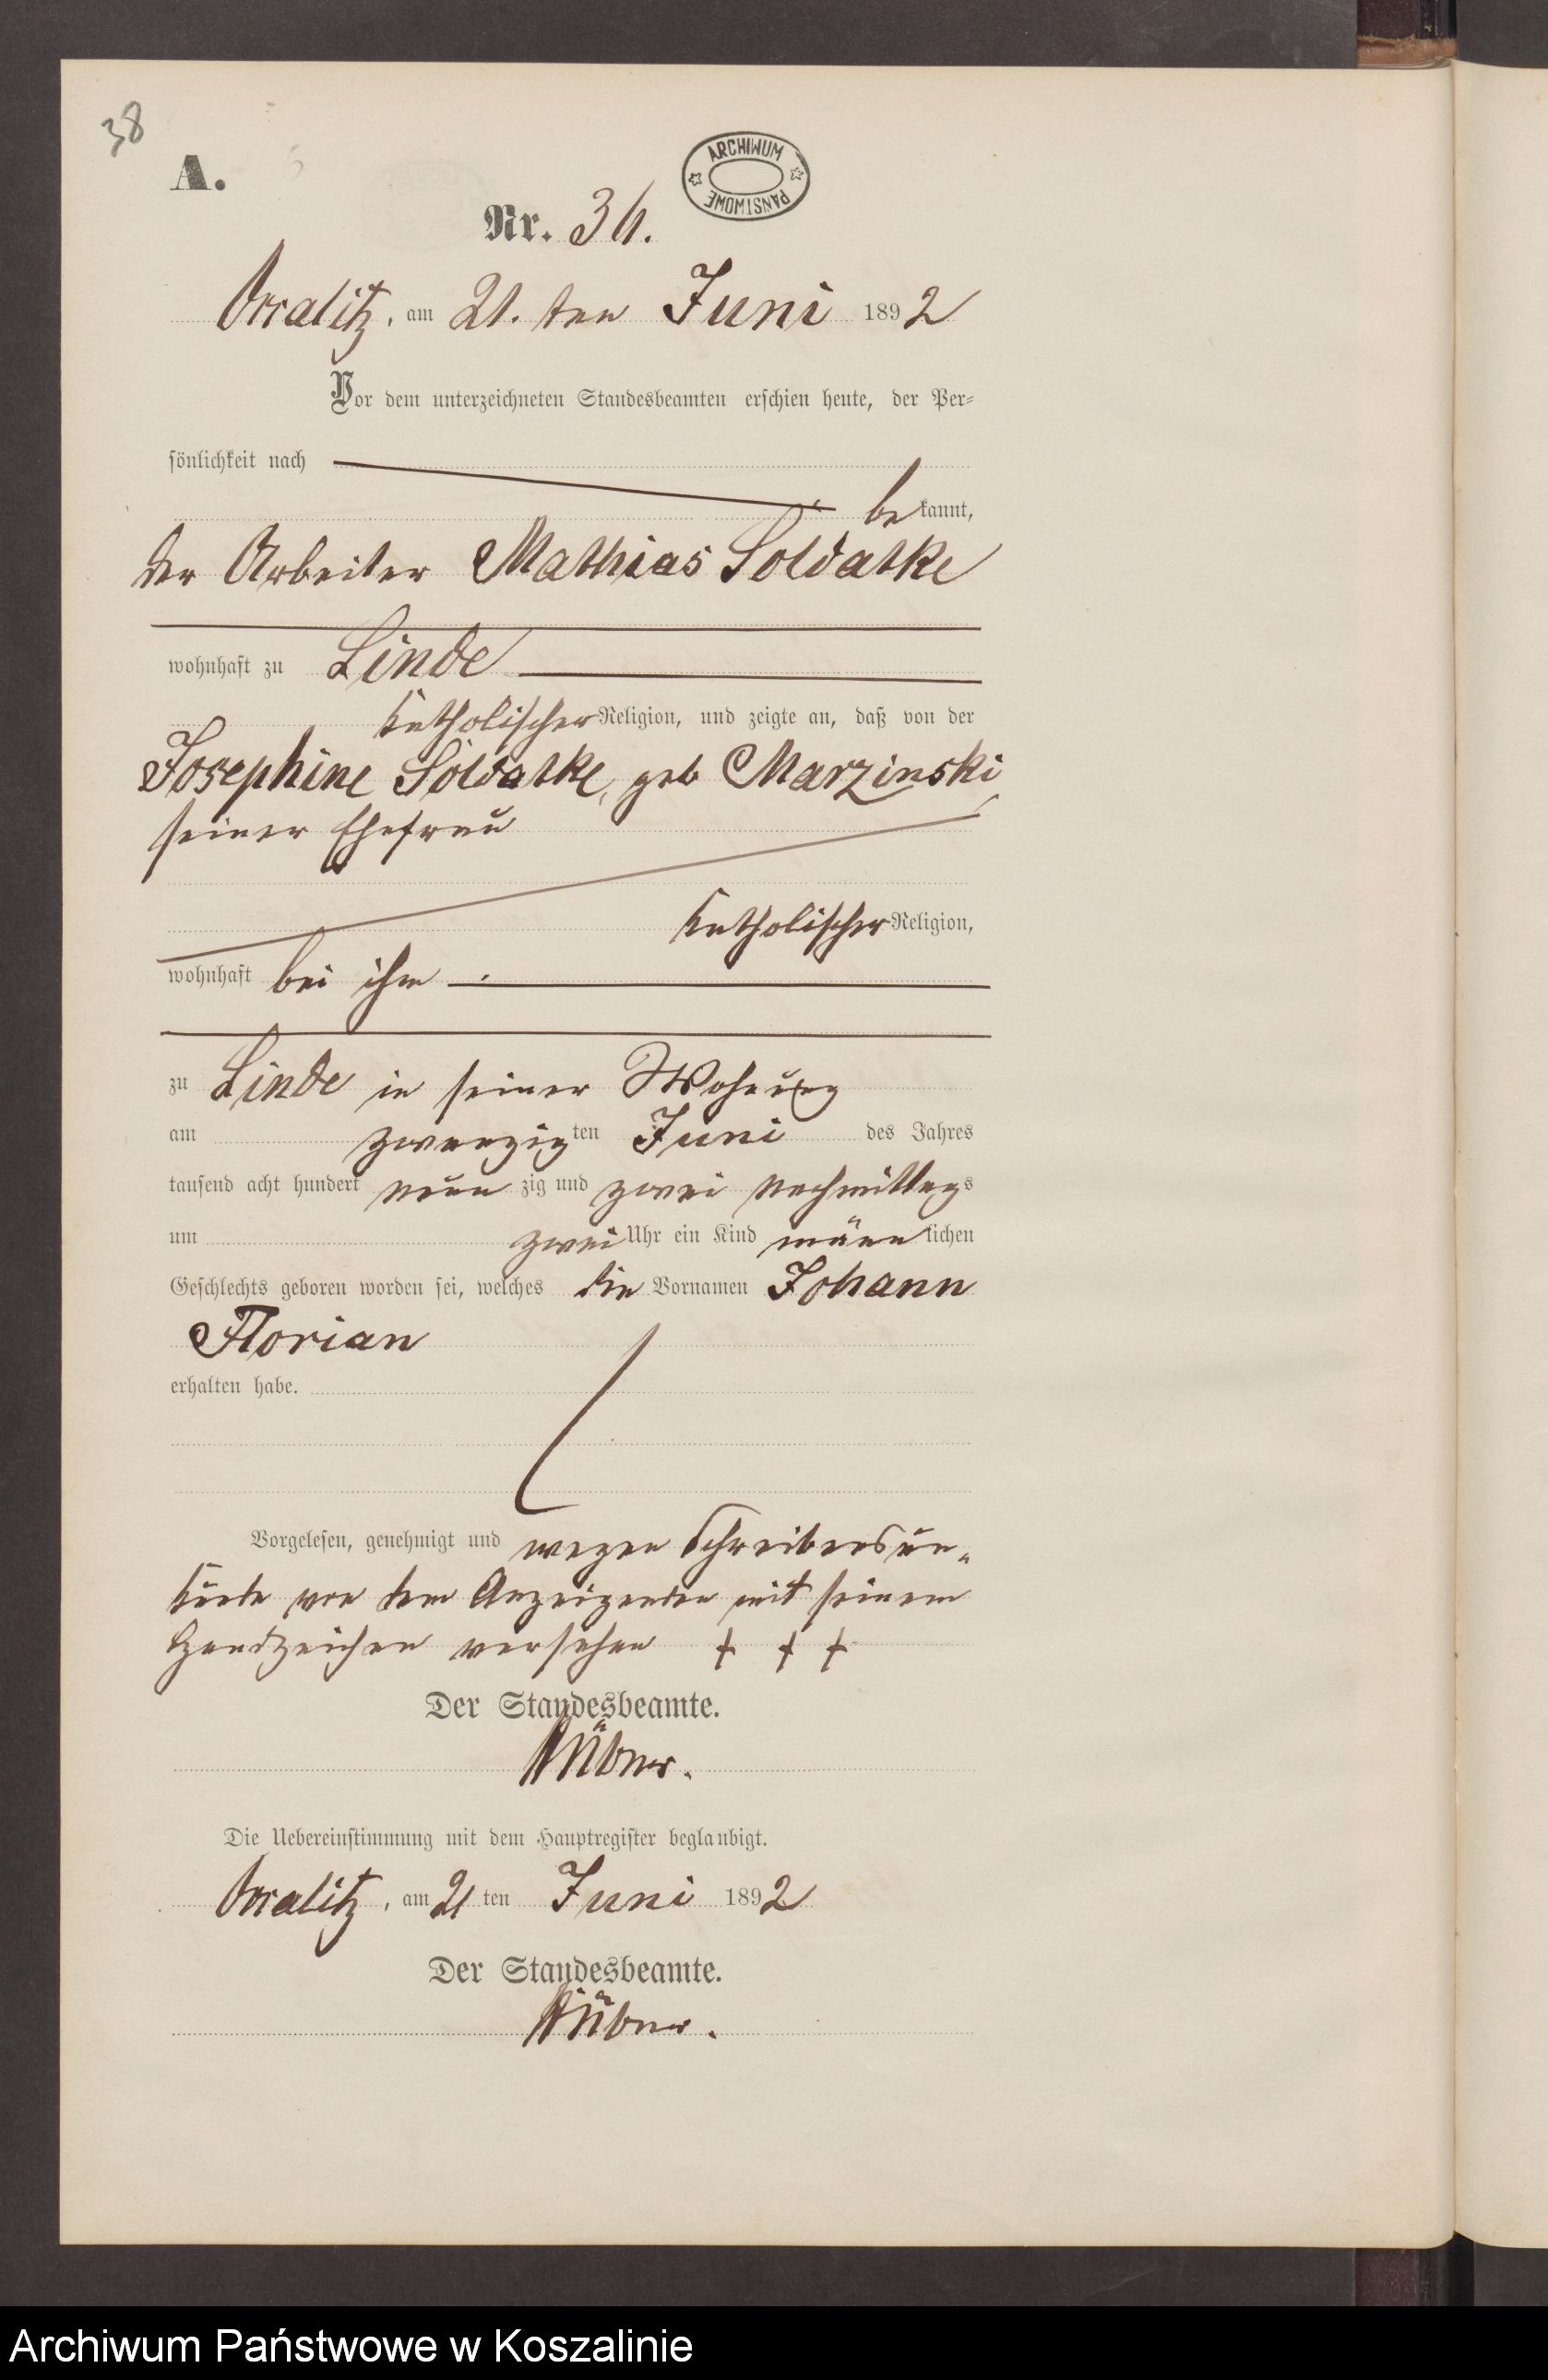 38
A.
ARCHIWUM
PAŃSTWOWE
Nr. 36.
am 21. ten Juni 1892
Vor dem unterzeichneten Standesbeamten erschien heute, der Per-
sönlichkeit nach
bekannt,
der Arbeiter Mathias Soldatke
wohnhaft zu Linde
katholischer Religion, und zeigte an, daß von der
Josephine Soldatke, geb Marzinski
seiner Ehefrau
katholischer Religion,
wohnhaft bei ihm
zu Linde in seiner Wohnung
am zwanzigten Juni des Jahres
tausend acht hundert neunzig und zwei nachmittags
um zwei Uhr ein Kind männlichen
Geschlechts geboren worden sei, welches die Vornamen Johann
Florian
erhalten habe.
Vorgelesen, genehmigt und wegen Schreibensun-
kunde von dem Anzeigenden mit seinem
Handzeichen versehen + + +
Der Standesbeamte.
Die Uebereinstimmung mit dem Hauptregister beglaubigt.
am 21 ten Juni 1892
Der Standesbeamte.
Archiwum Państwowe w Koszalinie